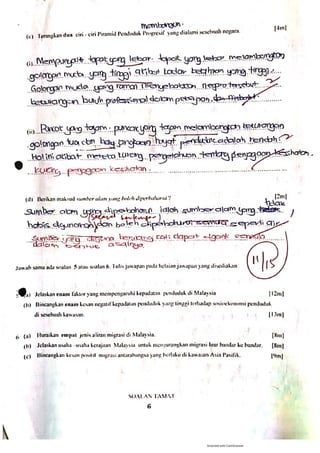 membangun.
(c) Terangkan dua ciri - ciri Piramid Penduduk Progresif yang dialami sesebuah negara. [4m]
(i) Mempunyai tapak yang lebar. tapak yang lebar melambangkan
golongan muda yang tinggi akibat kadar kelahiran yang tinggi.
Golongan muda yang ramai menyebabkan negara tersebut
kekurangan buruh profesional dalam pekerjaan
(ii) Puncak yang tajam. puncak yang tajam melambangkan kekurangan
golongan tua dan hayat penduduk adalah rendah.
Hal ini akibat mereka kurang pengetahuan tentang penjagaan kesihatan.
kurang penjagaan kesihatan.
(d) Berikan maksud sumber alam yang boleh diperbaharui ? [2m]
Sumber alam yang diperbaharui ialah sumber alam yang tidak
habis digunakan dan boleh diperbaharui semula seperti
Sumber yang digunakan berulang kali dapat
dalam bentuk asalnya.
11/15
Jawab sama ada soalan 5 atau soalan 6. Tulis jawapan pada helaian jawapan yang disediakan.
(a) Jelaskan enam faktor yang mempengaruhi kepadatan penduduk di Malaysia [12m]
(b) Bincangkan enam kesan negatif kepadatan penduduk yang tinggi terhadap sosioekonomi penduduk
di sesebuah kawasan. [13m]
6 (a) Huraikan empat jenis aliran migrasi di Malaysia. [8m]
(b) Jelaskan usaha - usaha kerajaan Malaysia untuk mengurangkan migrasi luar bandar ke bandar. [8m]
(c) Bincangkan kesan positif migrasi antarabangsa yang berlaku di kawasan Asia Pasifik. [9m]
SOALAN TAMAT
6
Scanned with CamScanner